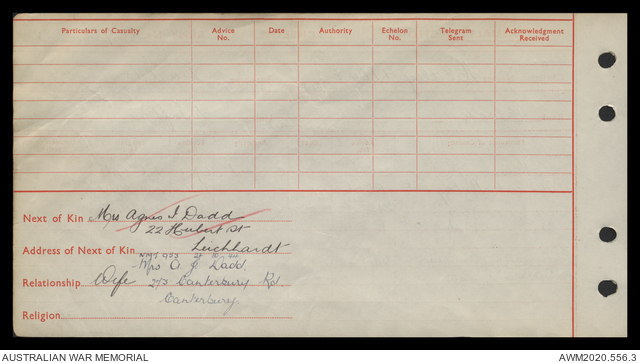 Particulars of Casualty Advice No. Date Authority Echelon No. Telegram Sent Acknowledgment Received
Next of Kin Mrs Agnes I. Dadd
22 Hubert St
Address of Next of Kin Leichhardt
Mrs A. I. Dadd.
Relationship Wife 273 Canterbury Rd.
Canterbury.
Religion
AUSTRALIAN WAR MEMORIAL AWM2020.556.3